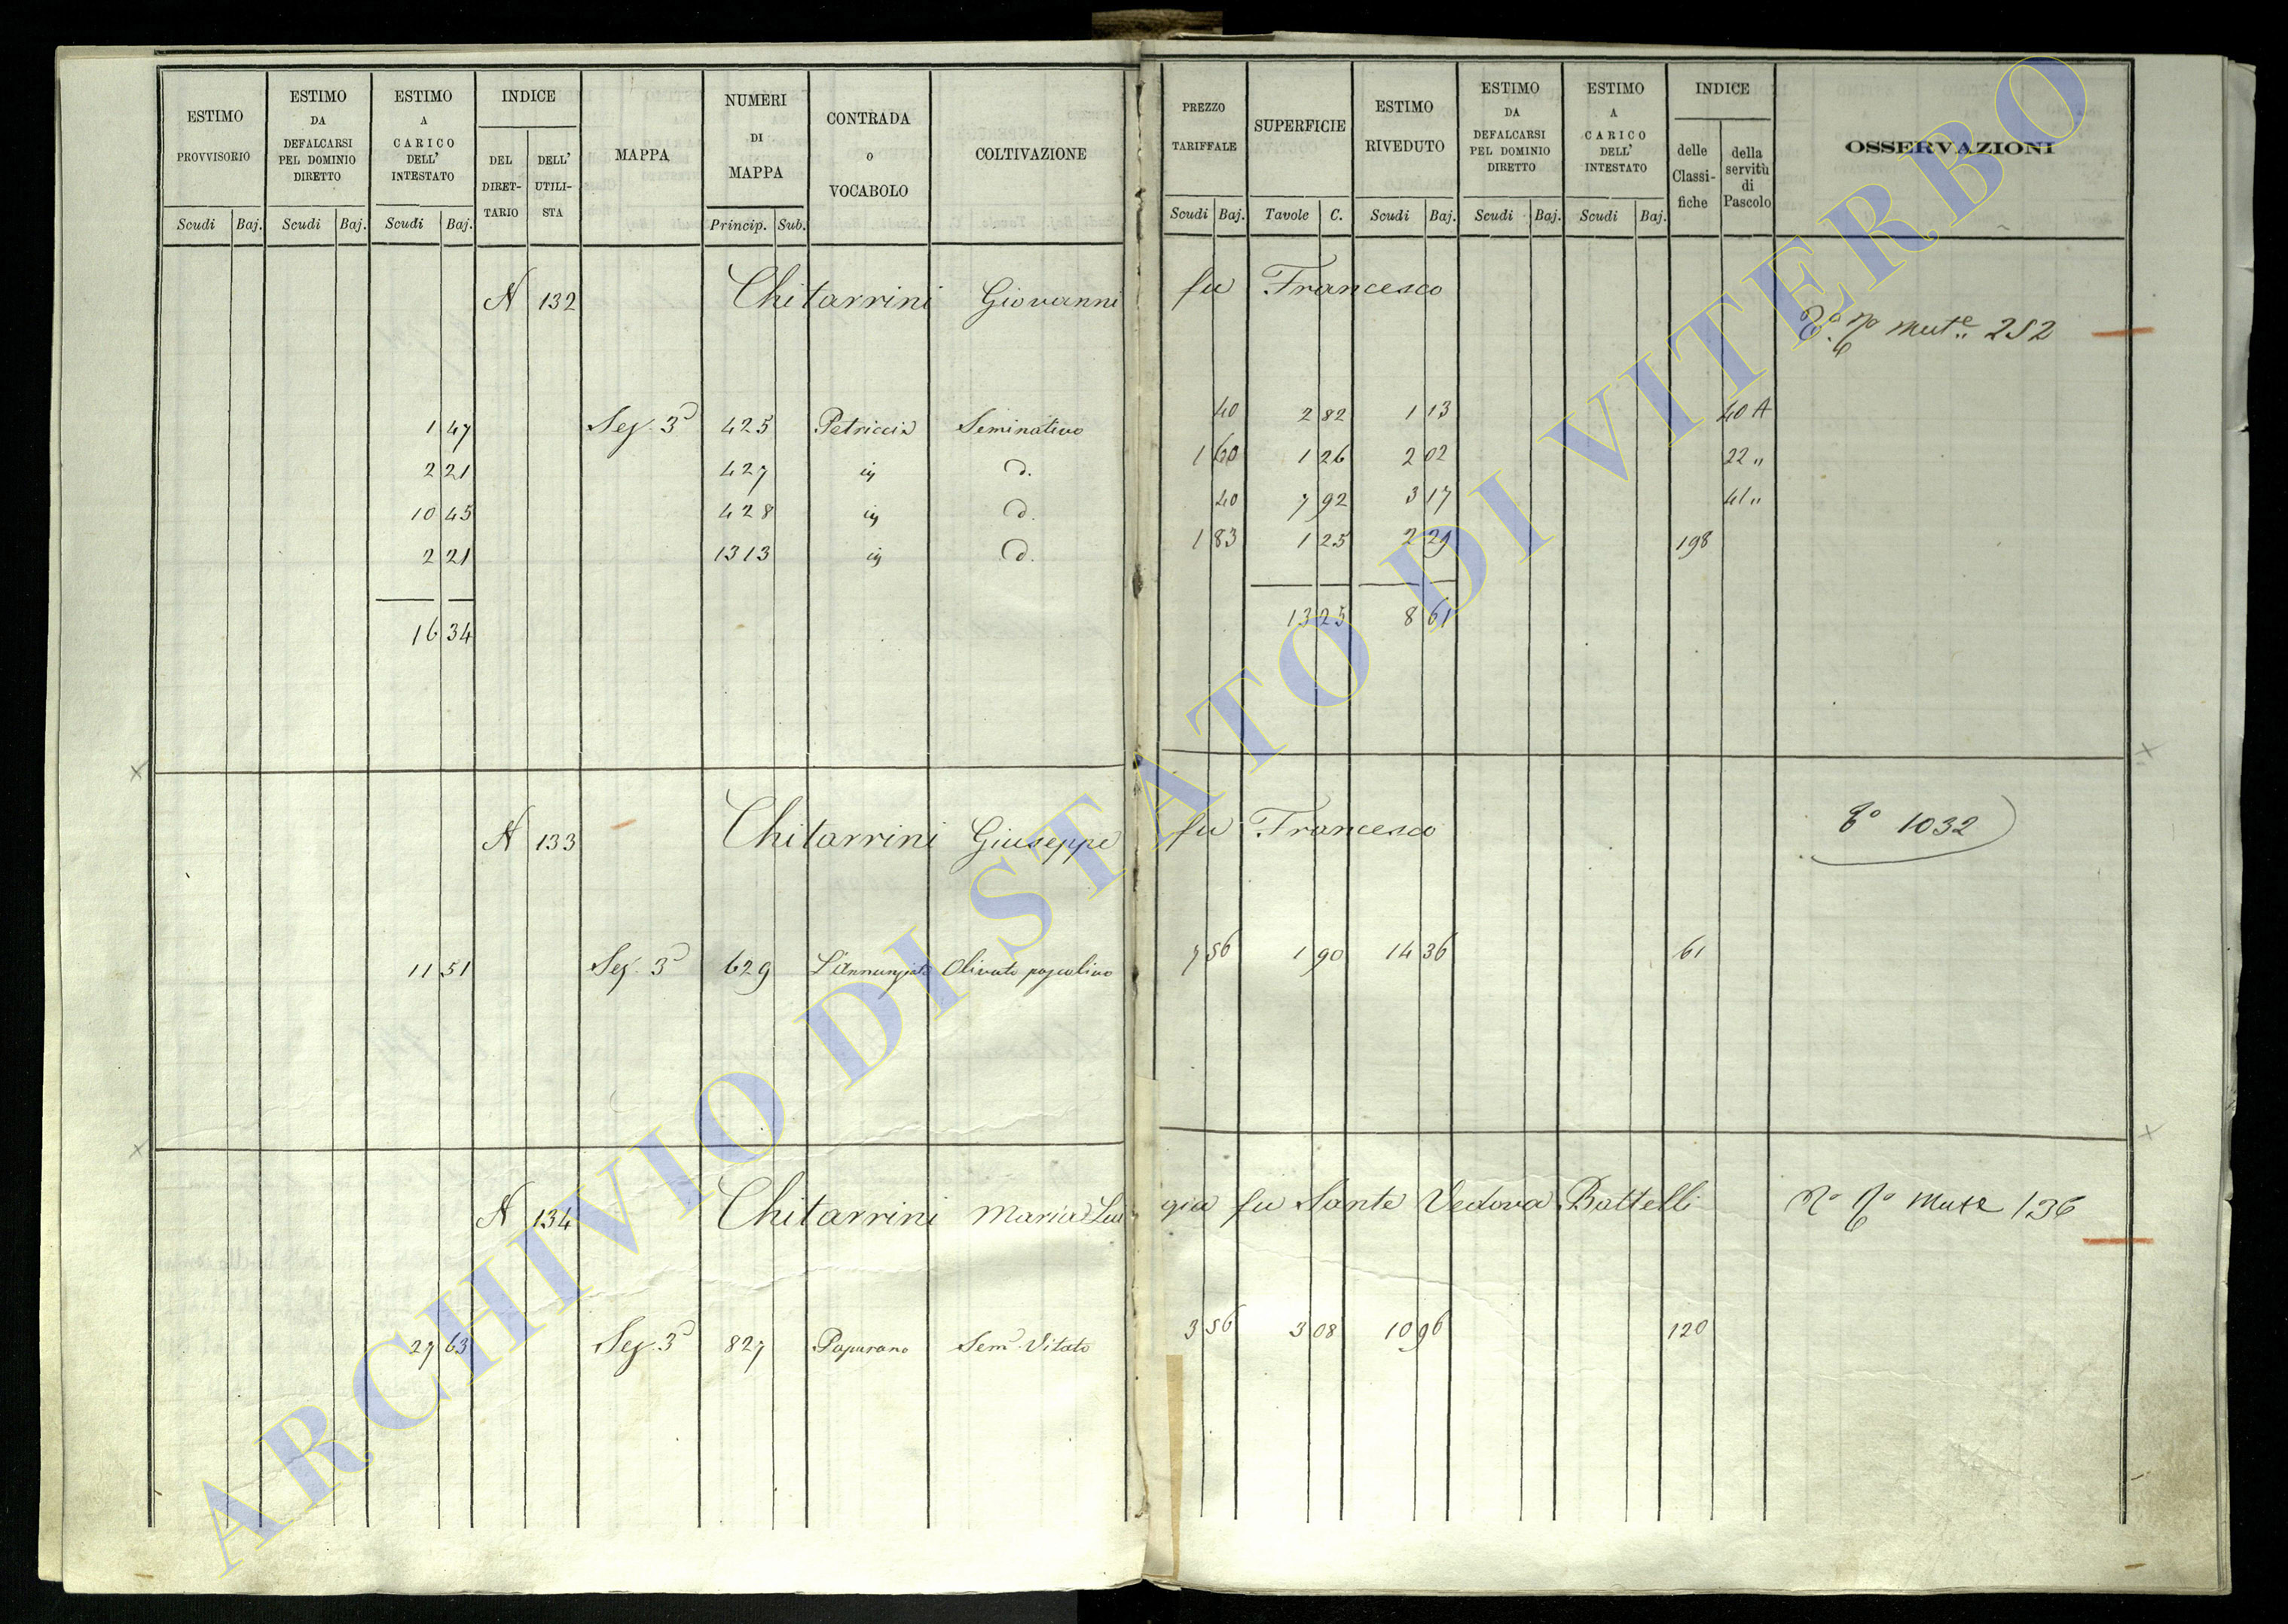 ESTIMO PROVVISORIO Scudi Baj.
ESTIMO DA DEFALCARSI PEL DOMINIO DIRETTO Scudi Baj.
ESTIMO A CARICO DELL' INTESTATO Scudi Baj.
INDICE DEL DIRET-TARIO DELL' UTILI-STA
MAPPA
NUMERI DI MAPPA Princip. Sub.
CONTRADA O VOCABOLO
COLTIVAZIONE
PREZZO TARIFFALE Scudi Baj.
SUPERFICIE Tavole C.
ESTIMO RIVEDUTO Scudi Baj.
ESTIMO DA DEFALCARSI PEL DOMINIO DIRETTO Scudi Baj.
ESTIMO A CARICO DELL' INTESTATO Scudi Baj.
INDICE delle Classi-fiche della servitù di Pascolo
OSSERVAZIONI
N 132 Chitarrini Giovanni fu Francesco
mut.e 252
1 47 Sez. 3a 425 Petriccia Seminativo 40 2 82 1 13 40 A
2 21 427 d. 1 60 1 26 2 02 22 "
10 45 428 d. 40 7 92 3 17 41 "
2 21 1313 d. 1 83 1 25 2 29 198
16 34 13 25 8 61
N 133 Chitarrini Giuseppe fu Francesco 1032
11 51 Sez. 3a 629 L'Annunziata Olivato pascolivo 7 56 1 90 14 36 61
N 134 Chitarrini Maria Luigia fu Sante Vedova Battelli mute 136
27 63 Sez. 3a 827 Papurano Sem.o Vitato 3 56 3 08 10 96 120
ARCHIVIO DI STATO DI VITERBO